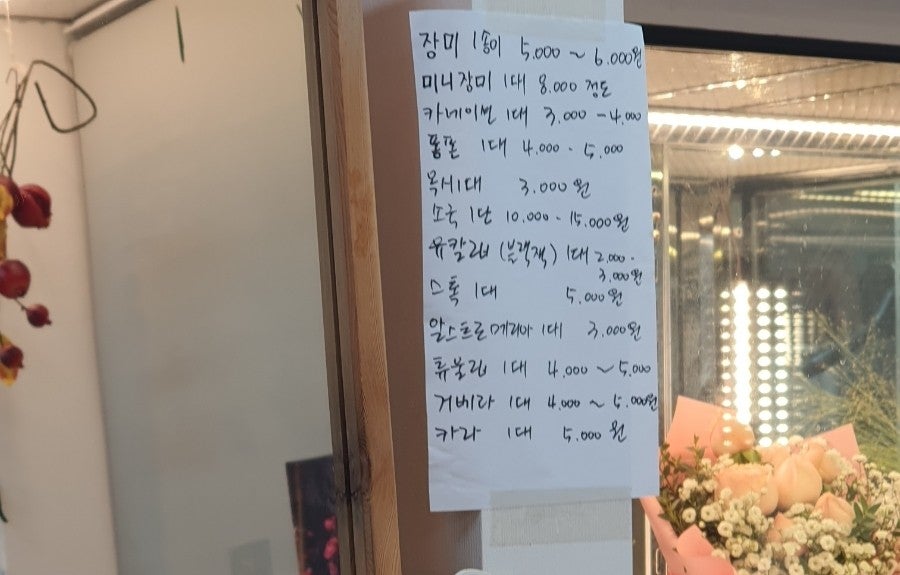 장미 1송이 5.000 ~ 6.000원
미니장미 1대 8.000 정도
카네이션 1대 3.000 - 4.000
퐁폰 1대 4.000 - 5.000
옥시1대 3.000원
소국 1단 10.000 - 15.000원
유칼립 (블랙잭) 1대 2.000 -
3.000원
스톡 1대 5.000원
알스트로메리아 1대 3.000원
튜울립 1대 4.000 ~ 5.000
거베라 1대 4.000 ~ 5.000원
카라 1대 5.000원